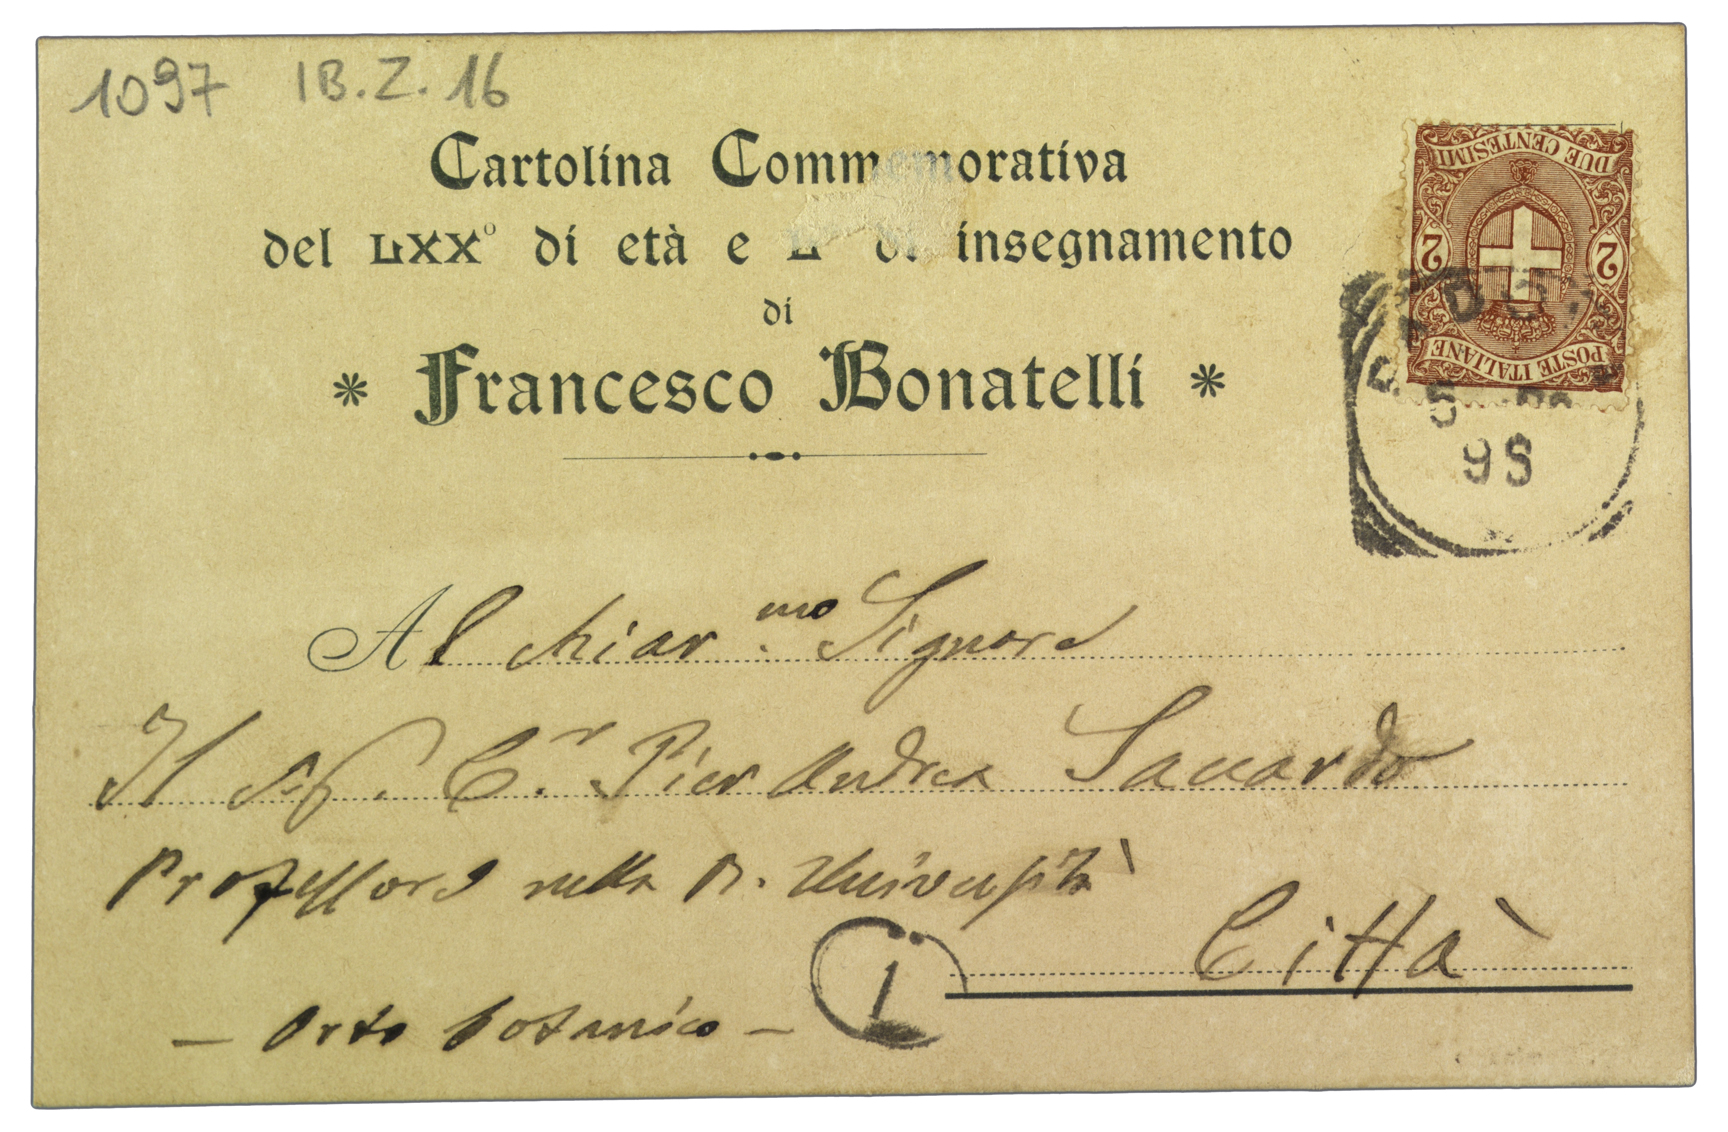 1097 IB.Z.16
Cartolina Commemorativa
del LXX° di età e L di insegnamento
di
* Francesco Bonatelli *
DUE CENTESIMI
2 2
POSTE ITALIANE
PADOVA
5
98
Al Chiar.mo Signore
Il Sig. C.r Pier Andrea Saccardo
Professore nella R. Università
Città
1
— Orto botanico —